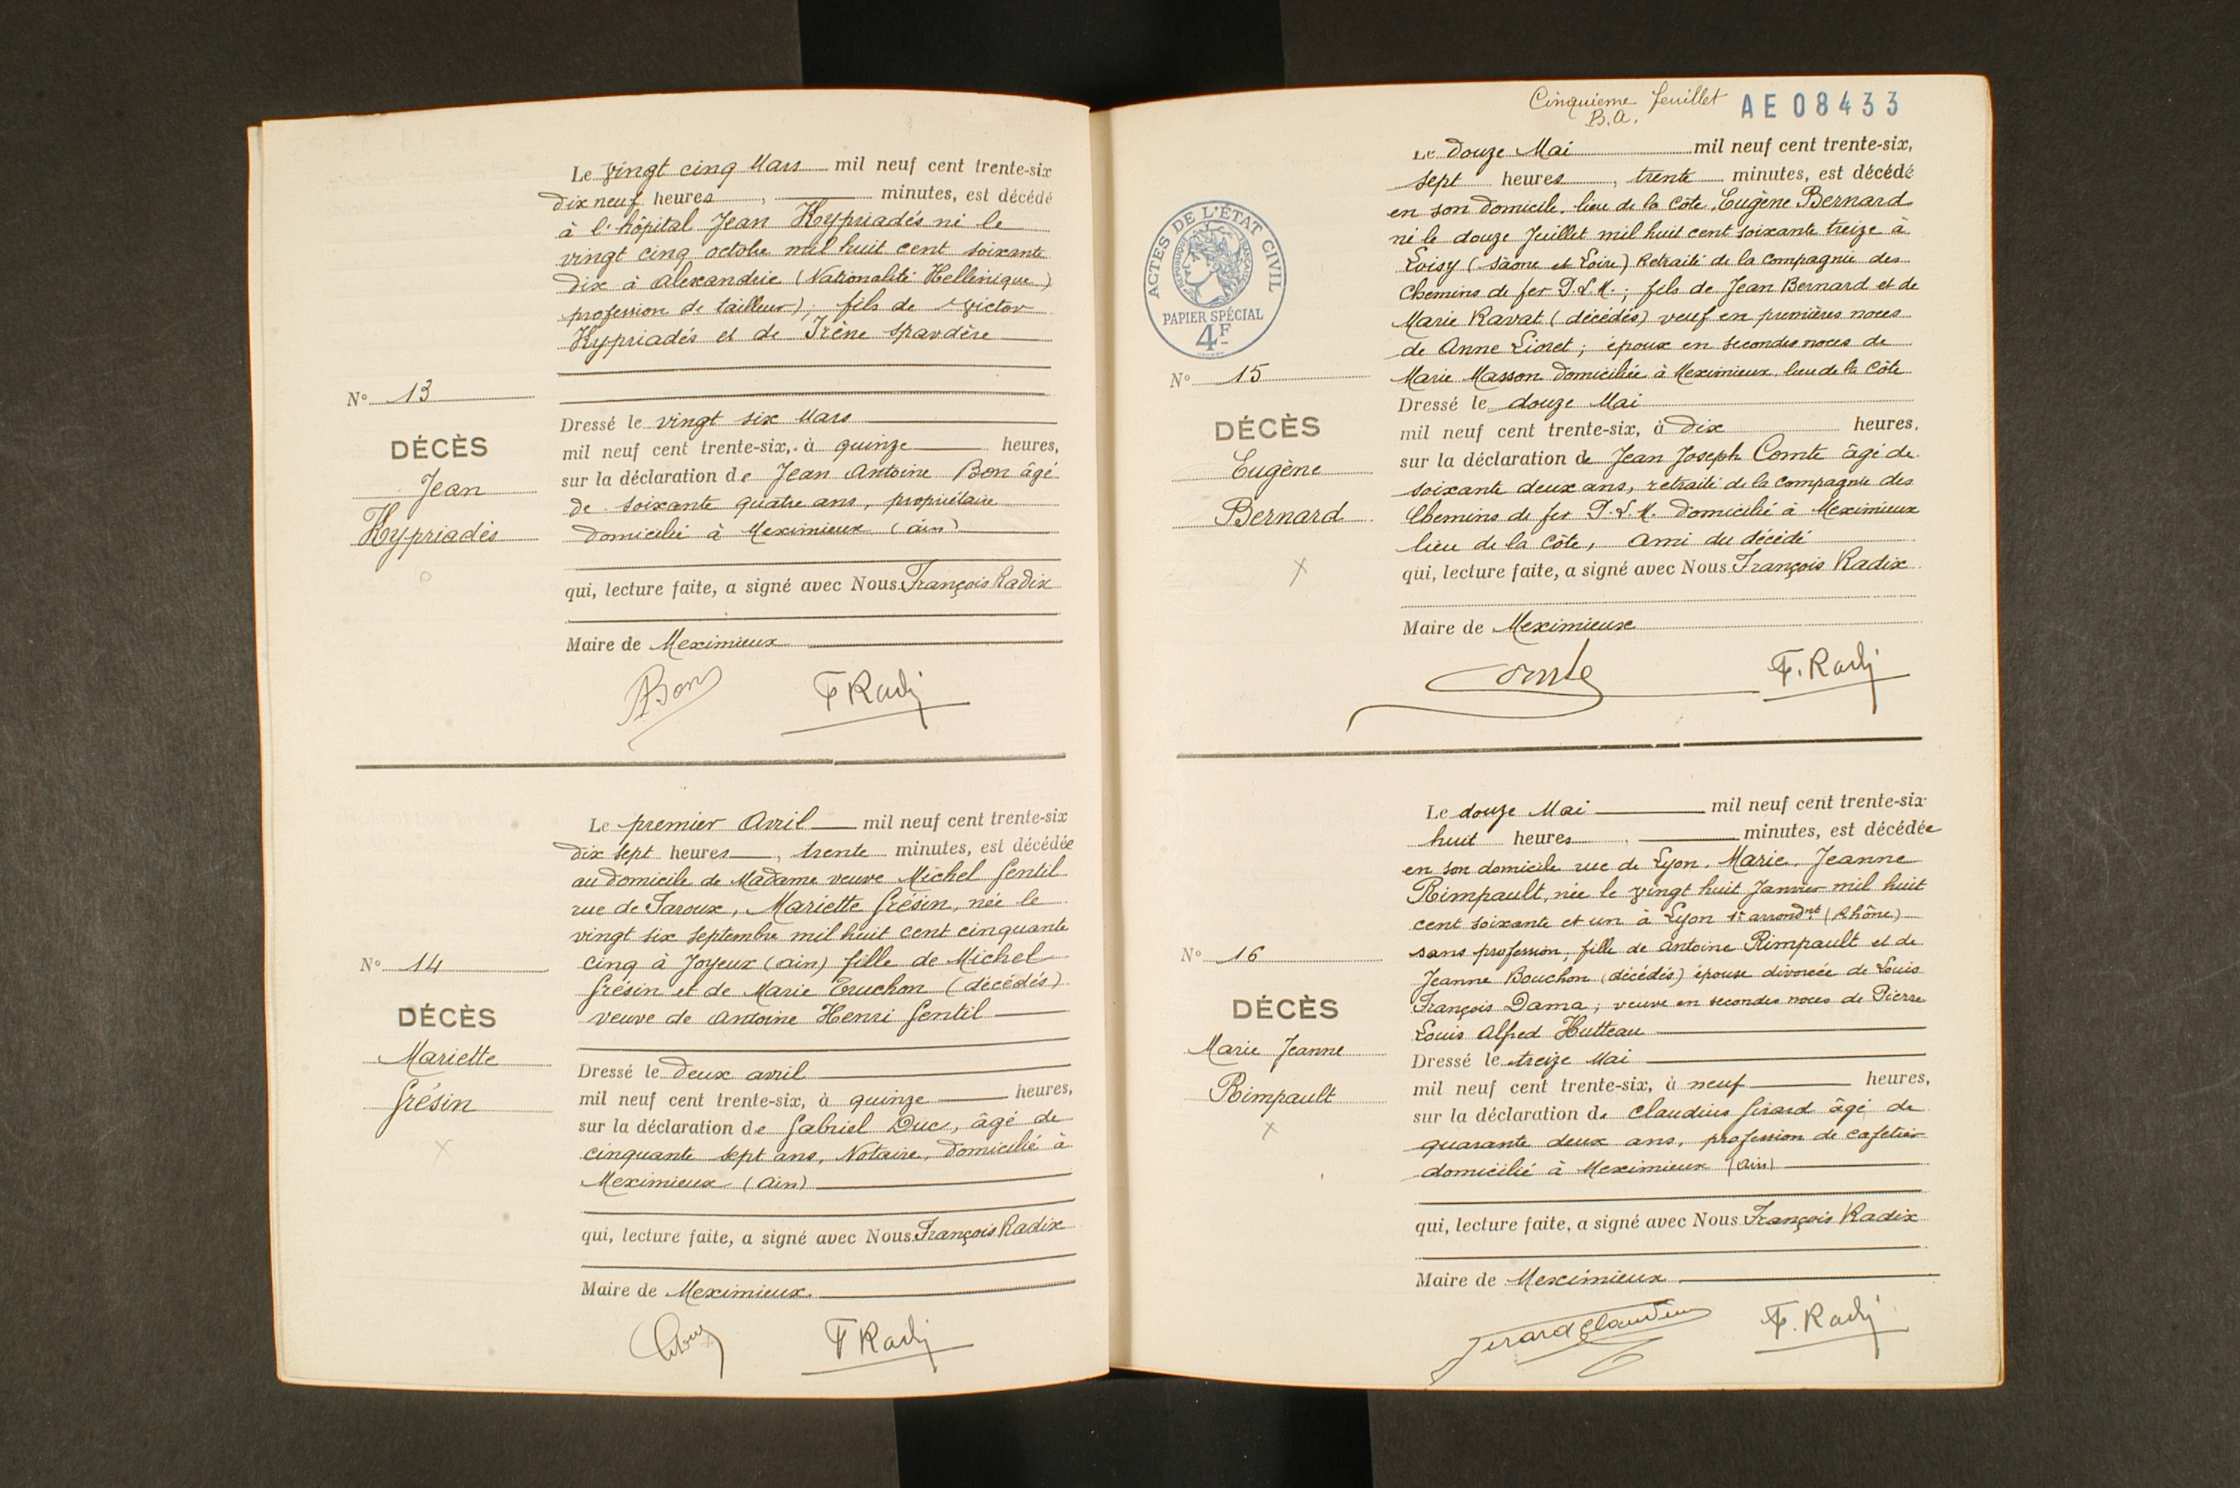 Le vingt cinq Mars mil neuf cent trente-six
dix neuf heures, minutes, est décédé
à l'hôpital Jean Kypriadés né le
vingt cinq octobre mil huit cent soixante
dix à Alexandrie (Nationalité Hellénique)
profession de tailleur); fils de Victor
Kypriadés et de Irène Spavdère
N° 13
DÉCÈS
Jean
Kypriadès
Dressé le vingt six Mars
mil neuf cent trente-six, à quinze heures,
sur la déclaration de Jean Antoine Bon âgé
de soixante quatre ans, propriétaire
domicilié à Meximieux (ain)
qui, lecture faite, a signé avec Nous François Radix
Maire de Meximieux
ABon F Radix
Le premier Avril mil neuf cent trente-six
dix sept heures, trente minutes, est décédée
au domicile de Madame veuve Michel Gentil
rue de Faroux, Mariette Grésin, née le
vingt six septembre mil huit cent cinquante
cinq à Joyeux (ain) fille de Michel
Grésin et de Marie Truchon (décédés)
veuve de Antoine Henri Gentil
N° 14
DÉCÈS
Mariette
Grésin
Dressé le deux avril
mil neuf cent trente-six, à quinze heures,
sur la déclaration de Gabriel Duc, âgé de
cinquante sept ans, Notaire, domicilié à
Meximieux (Ain)
qui, lecture faite, a signé avec Nous François Radix
Maire de Meximieux.
F Radix
Cinquieme feuillet AE 08433
B.A.
ACTES DE L'ÉTAT CIVIL
RÉPUBLIQUE FRANÇAISE
PAPIER SPÉCIAL
4F
Le douze Mai mil neuf cent trente-six,
sept heures, trente minutes, est décédé
en son domicile, lieu de la Côte, Eugène Bernard
né le douze Juillet mil huit cent soixante treize à
Loisy (Saône et Loire) Retraité de la compagnie des
Chemins de fer P.L.M.; fils de Jean Bernard et de
Marie Ravat (décédés) veuf en premières noces
de Anne Lioret; époux en secondes noces de
Marie Masson domiciliée à Meximieux, lieu de la Côte
N° 15
DÉCÈS
Eugène
Bernard
Dressé le douze Mai
mil neuf cent trente-six, à dix heures,
sur la déclaration de Jean Joseph Comte âgé de
soixante deux ans, retraité de la compagnie des
Chemins de fer P.L.M. domicilié à Meximieux
lieu de la Côte, Ami du décédé
qui, lecture faite, a signé avec Nous François Radix
Maire de Meximieux
Comte F. Radix
Le douze Mai mil neuf cent trente-six
huit heures, minutes, est décédée
en son domicile rue de Lyon, Marie, Jeanne
Rimpault, née le vingt huit Janvier mil huit
cent soixante et un à Lyon 1er arrondnt (Rhône)
sans profession, fille de Antoine Rimpault et de
Jeanne Bouchon (décédés) épouse divorcée de Louis
François Dama; veuve en secondes noces de Pierre
Louis Alfred Hutteau
N° 16
DÉCÈS
Marie Jeanne
Rimpault
Dressé le treize Mai
mil neuf cent trente-six, à neuf heures,
sur la déclaration de Claudius Girard âgé de
quarante deux ans, profession de cafetier
domicilié à Meximieux (Ain)
qui, lecture faite, a signé avec Nous François Radix
Maire de Meximieux
Girard Claudius F. Radix